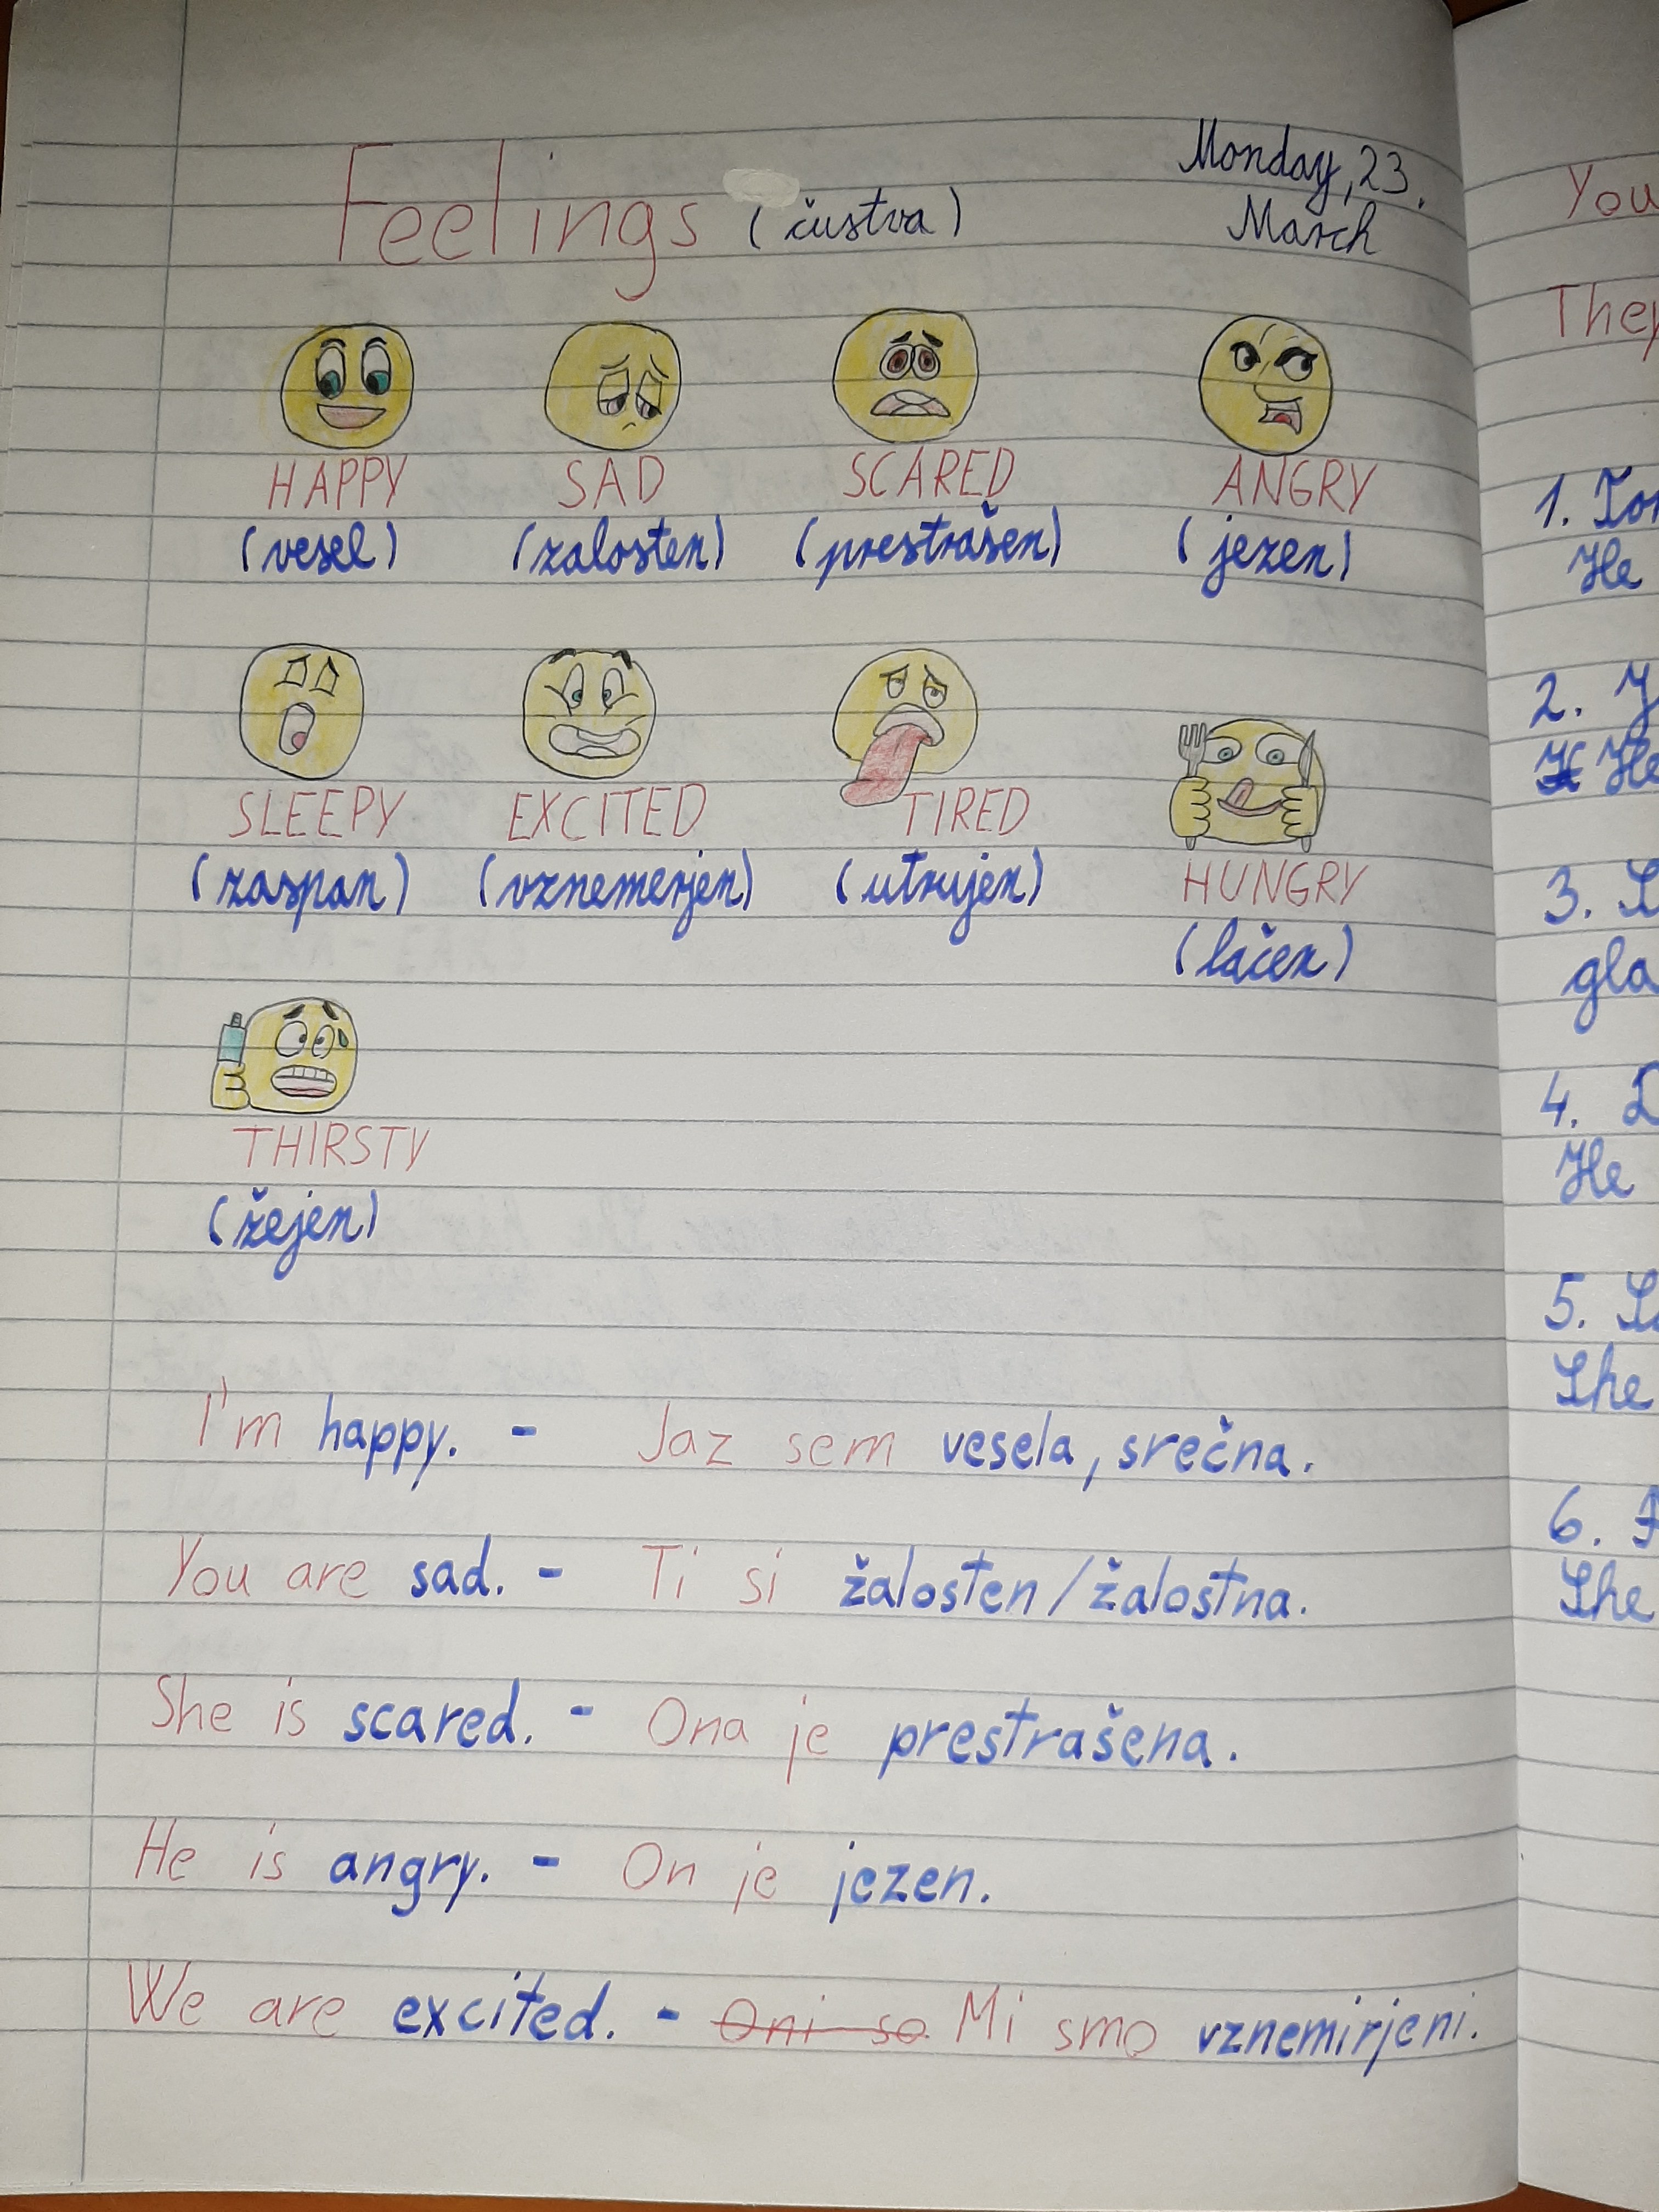 Monday, 23.
March
Feelings (čustva)
HAPPY SAD SCARED ANGRY
(vesel) (zalosten) (prestrašen) (jezen)
SLEEPY EXCITED TIRED HUNGRY
(zaspan) (vznemerjen) (utrujen) (lačen)
THIRSTY
(žejen)
I'm happy. - Jaz sem vesela, srečna.
You are sad. - Ti si žalosten/žalostna.
She is scared. - Ona je prestrašena.
He is angry. - On je jezen.
We are excited. - Oni so Mi smo vznemirjeni.
You
They
1.
He
2.
He
3.
gla
4.
He
5.
She
6.
She